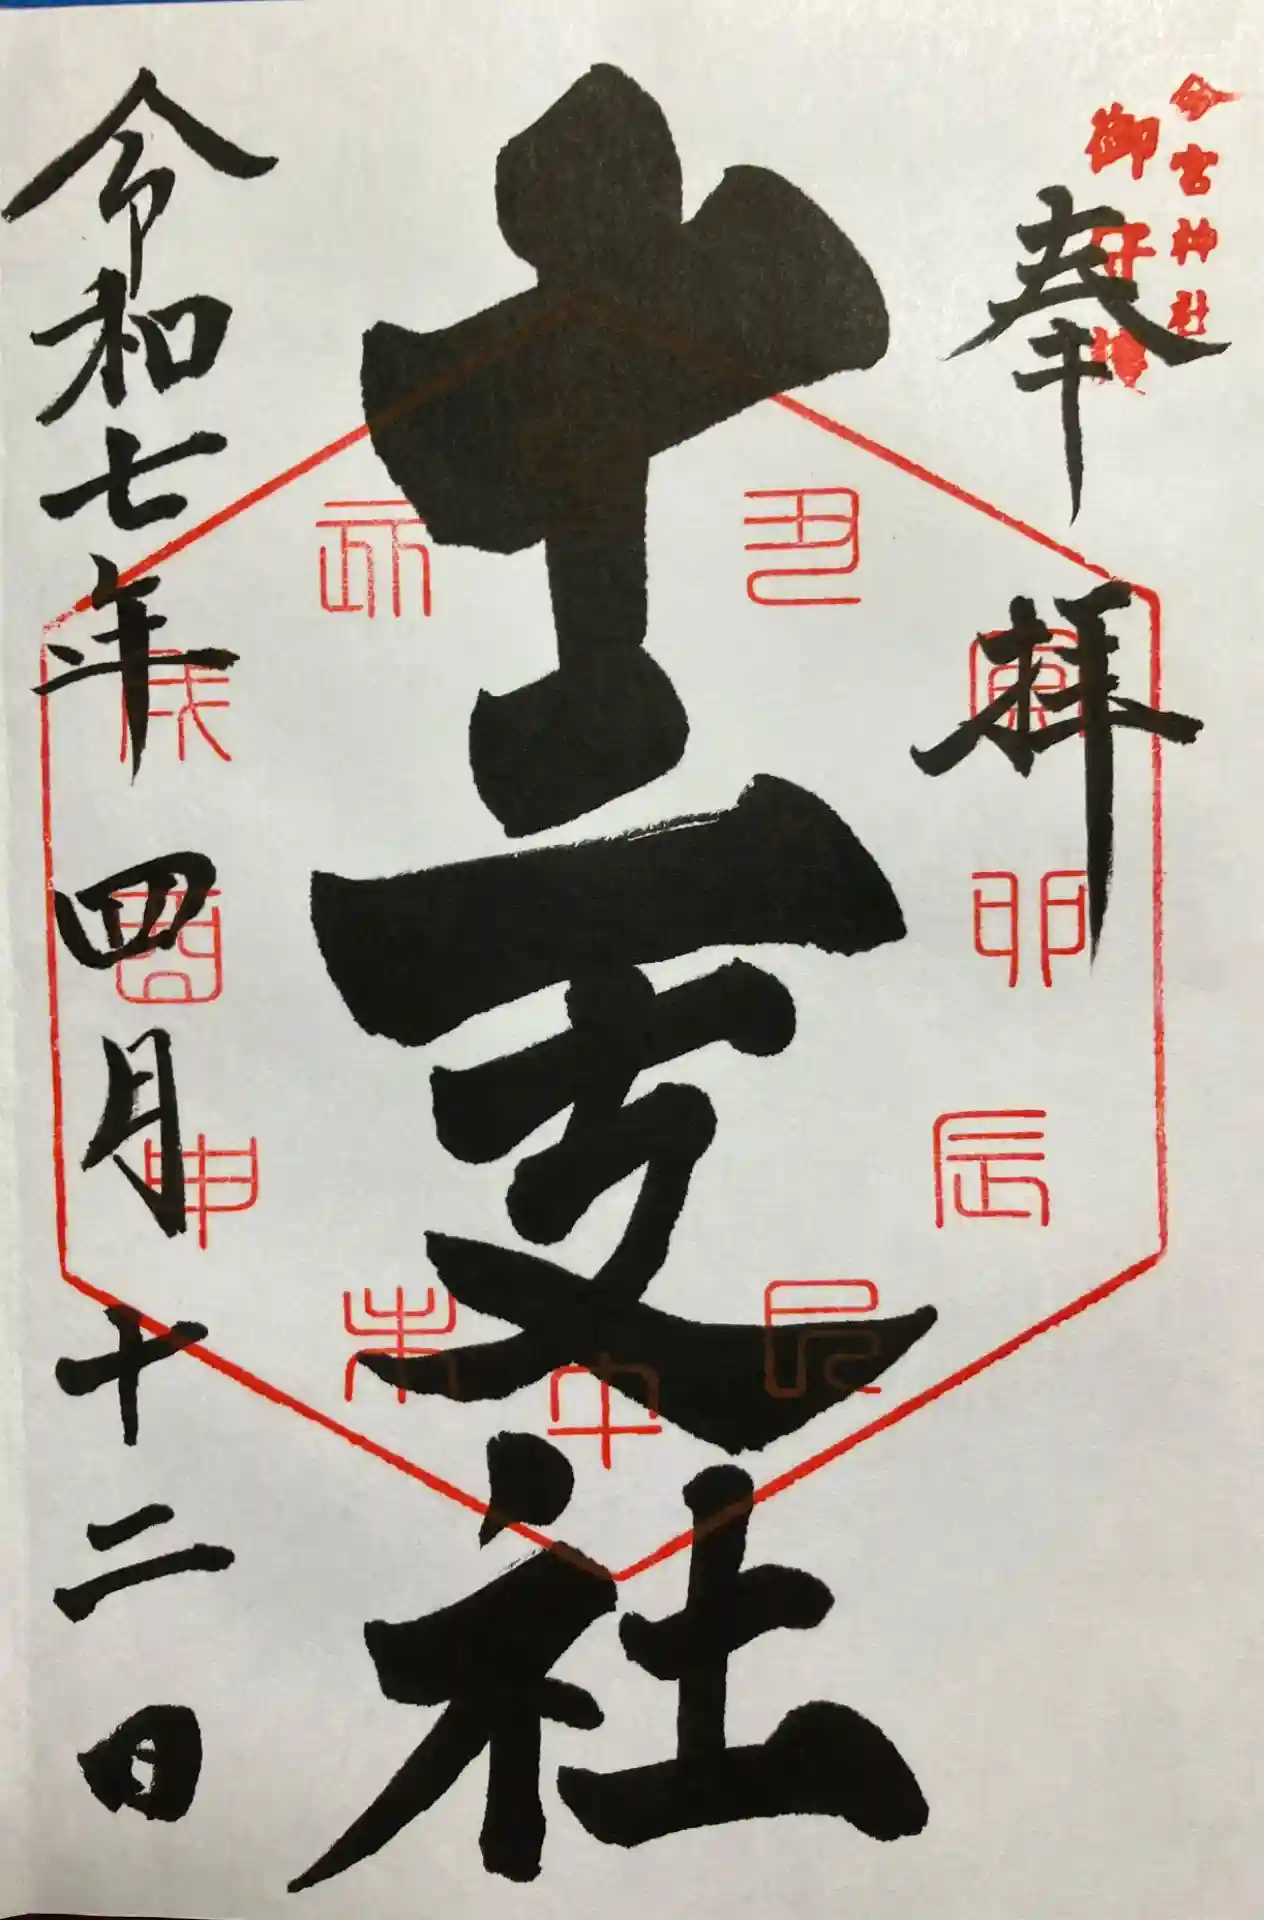 今宮神社
御
奉拝
十二支社
令和七年四月十二日
丑
寅
卯
辰
巳
午
未
申
酉
戌
亥